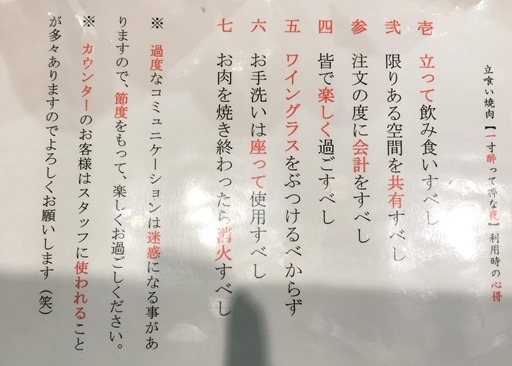 立喰い焼肉【一寸酔って帝な夜】利用時の心得
壱 立って飲み食いすべし
弐 限りある空間を共有すべし
参 注文の度に会計をすべし
四 皆で楽しく過ごすべし
五 ワイングラスをぶつけるべからず
六 お手洗いは座って使用すべし
七 お肉を焼き終わったら消火すべし
※ 過度なコミュニケーションは迷惑になる事があ
りますので、節度をもって、楽しくお過ごしください。
※ カウンターのお客様はスタッフに使われること
が多々ありますのでよろしくお願いします(笑)